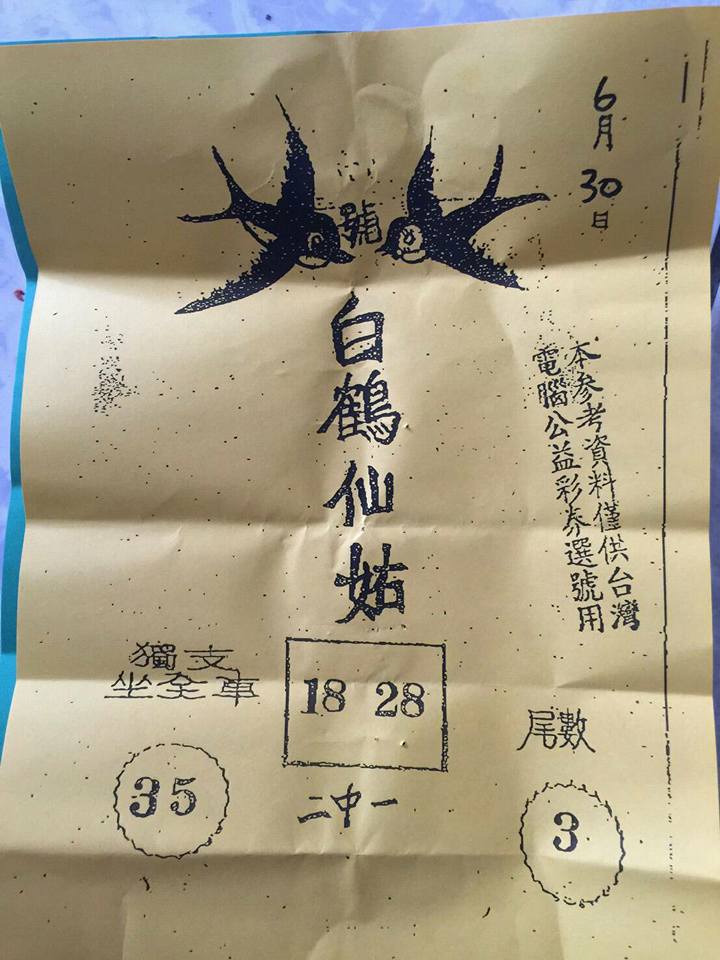 6月30日
號
白鶴仙姑
本参考資料僅供台灣
電腦公益彩券選號用
獨支
坐全車
35
18 28
二中一
尾數
3